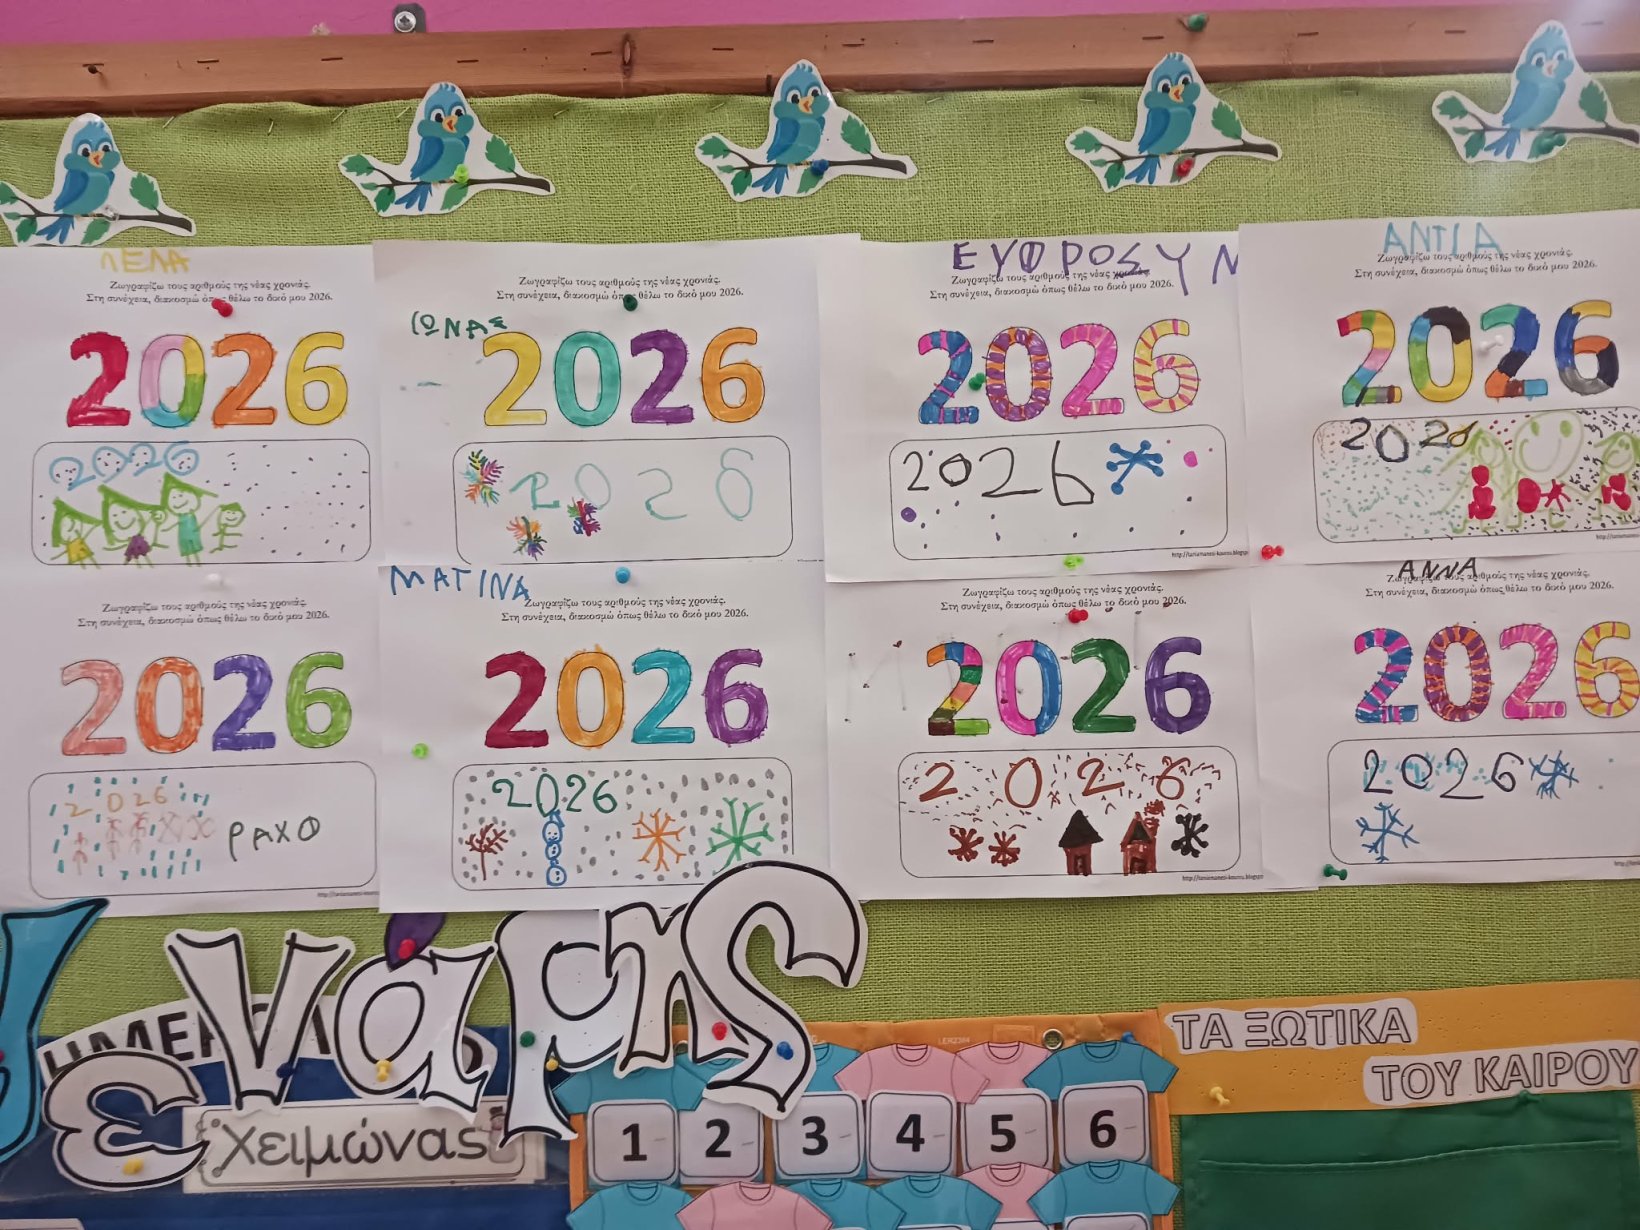 ΛΕΛΑ
Ζωγραφίζω τους αριθμούς της νέας χρονιάς.
Στη συνέχεια, διακοσμώ όπως θέλω το δικό μου 2026.
2026
2026
Ζωγραφίζω τους αριθμούς της νέας χρονιάς.
Στη συνέχεια, διακοσμώ όπως θέλω το δικό μου 2026.
ΙΩΝΑΣ
2026
2026
ΕΥΦΡΟΣΥΝ
Ζωγραφίζω τους αριθμούς της νέας χρονιάς.
Στη συνέχεια, διακοσμώ όπως θέλω το δικό μου 2026.
2026
2026
http://taniamanesi-kourou.blogspo
ΑΝΤΙΑ
Ζωγραφίζω τους αριθμούς της νέας χρονιάς.
Στη συνέχεια, διακοσμώ όπως θέλω το δικό μου 2026.
2026
2026
http://taniamanesi-kou
Ζωγραφίζω τους αριθμούς της νέας χρονιάς.
Στη συνέχεια, διακοσμώ όπως θέλω το δικό μου 2026.
2026
2026
ΡΑΧΟ
http://taniamanesi-kourou
ΜΑΤΙΝΑ
Ζωγραφίζω τους αριθμούς της νέας χρονιάς.
Στη συνέχεια, διακοσμώ όπως θέλω το δικό μου 2026.
2026
2026
Ζωγραφίζω τους αριθμούς της νέας χρονιάς.
Στη συνέχεια, διακοσμώ όπως θέλω το δικό μου 2026.
2026
2026
http://taniamanesi-kourou.blogspo
ΑΝΝΑ
Ζωγραφίζω τους αριθμούς της νέας χρονιάς.
Στη συνέχεια, διακοσμώ όπως θέλω το δικό μου 2026.
2026
2026
http://tani
ενάρης
Χειμώνας
1 2 3 4 5 6
ΤΑ ΞΩΤΙΚΑ
ΤΟΥ ΚΑΙΡΟΥ